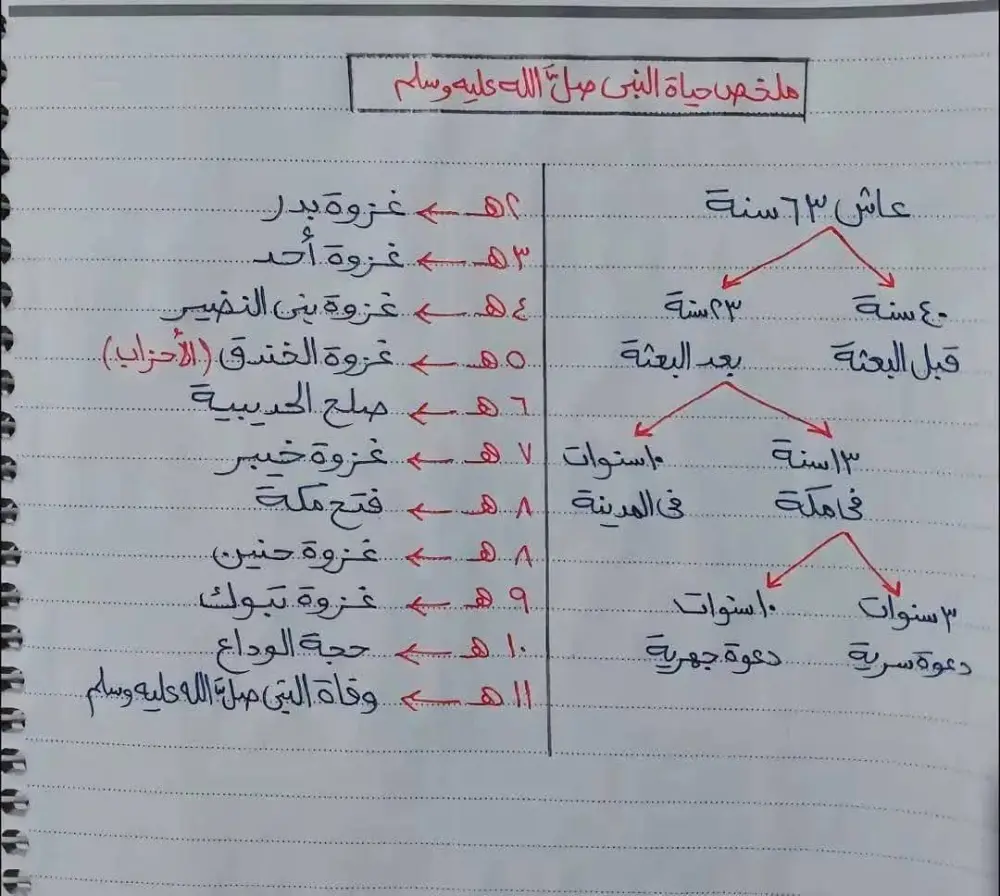 ملخص حياة النبى صلَّ الله عليه وسلم
عاش ٦٣ سنة
٤٠ سنة
٢٣ سنة
قبل البعثة
بعد البعثة
١٣ سنة
١٠ سنوات
فى مكة
فى المدينة
٣ سنوات
١٠ سنوات
دعوة سرية
دعوة جهرية
٢ هـ ← غزوة بدر
٣ هـ ← غزوة أُحد
٤ هـ ← غزوة بنى النضير
٥ هـ ← غزوة الخندق (الأحزاب)
٦ هـ ← صلح الحديبية
٧ هـ ← غزوة خيبر
٨ هـ ← فتح مكة
٨ هـ ← غزوة حنين
٩ هـ ← غزوة تبوك
١٠ هـ ← حجة الوداع
١١ هـ ← وفاة النبى صلَّ الله عليه وسلم